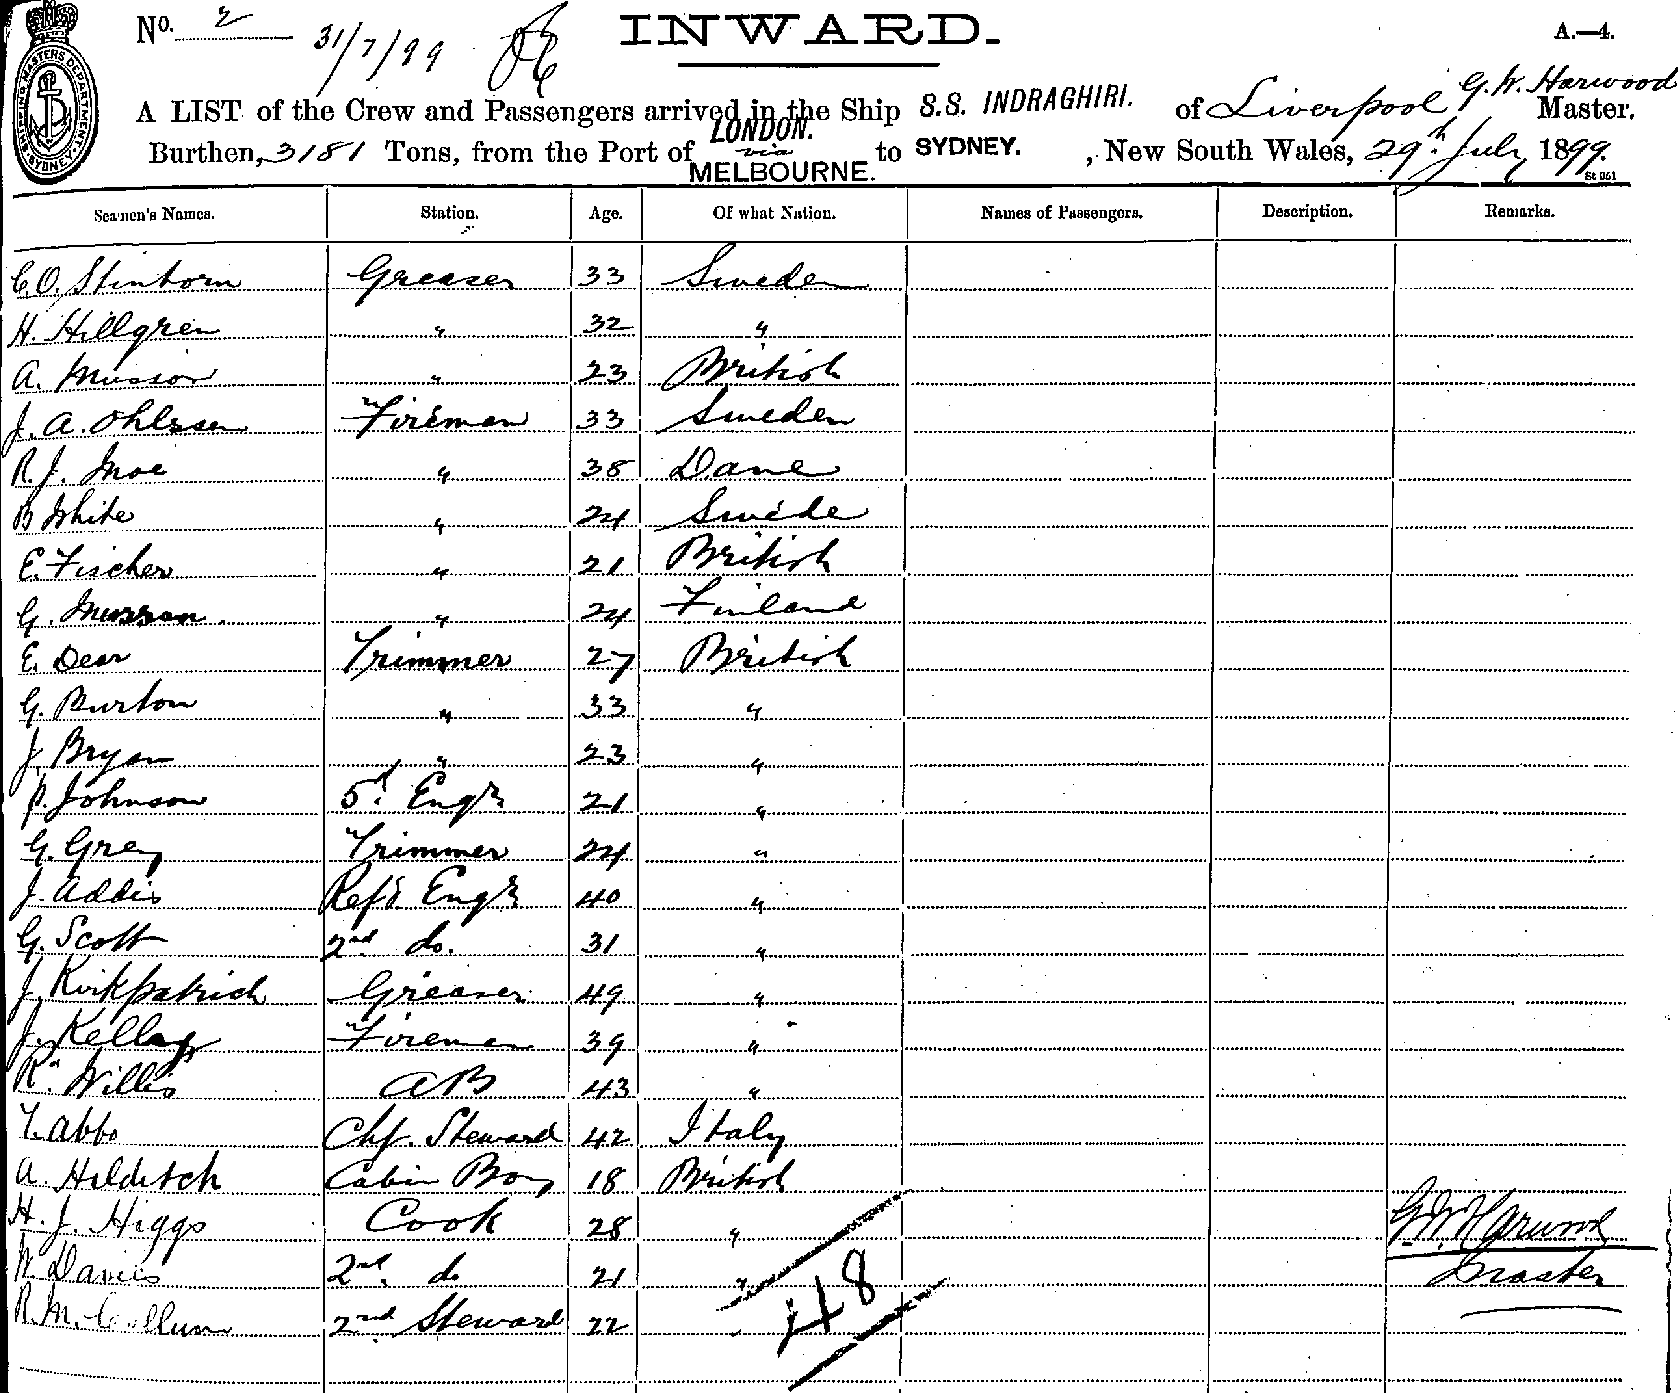 No. 2 31/7/99 INWARD. A.—4.
SHIPPING MASTERS DEPARTMENT SYDNEY
G. W. Harwood
A LIST of the Crew and Passengers arrived in the Ship S.S. INDRAGHIRI. of Liverpool Master.
Burthen, 3181 Tons, from the Port of LONDON. via MELBOURNE. to SYDNEY. , New South Wales, 29th July 1899.
St 861
Seamen's Names. Station. Age. Of what Nation. Names of Passengers. Description. Remarks.
C. O. Stinborn Greaser 33 Sweden
H. Hillgren " 32 "
A. Musson " 23 British
J. A. Ohlssen Fireman 33 Sweden
R. J. Moe " 38 Dane
B White " 24 Swede
E. Fischer " 21 British
G. " 24 Finland
E. Dear Trimmer 27 British
G. Burton " 33 "
J. Bryan " 23 "
P. Johnson 5th Engr 21 "
G. Grey Trimmer 24 "
J. Addis Refr Engr 40 "
G. Scott 2nd do. 31 "
J. Kirkpatrick Greaser 49 "
J. Kellay Fireman 39 "
R. Willis AB 43 "
T. Abbo Chf. Steward 42 Italy
A. Hilditch Cabin Boy 18 British
H. J. Higgs Cook 28 " G. W. Harwood
W. Davies 2nd do 21 " Master
R. McCullum 2nd Steward 22 "
48